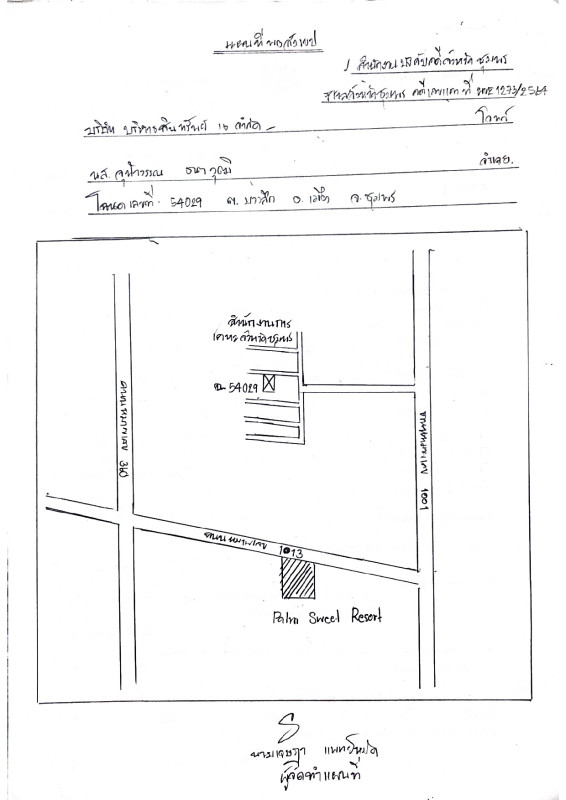 แผนที่พอสังเขป
สำนักงานบังคับคดีจังหวัดชุมพร
ศาลจังหวัดชุมพร คดีหมายเลขแดงที่ ผบE1273/2564
บริษัท บริหารสินทรัพย์ จำกัด โจทก์
นส. จุฬาวรรณ ธนาวุฒิ จำเลย
โฉนดเลขที่ 54029 ต. บางลึก อ. เมือง จ. ชุมพร
สำนักงานการ
เคหะจังหวัดชุมพร
ฉ. 54029
ถนนหมายเลข 360
ถนนหมายเลข 1001
ถนนหมายเลข 1013
Palm Sweet Resort
ผู้จัดทำแผนที่